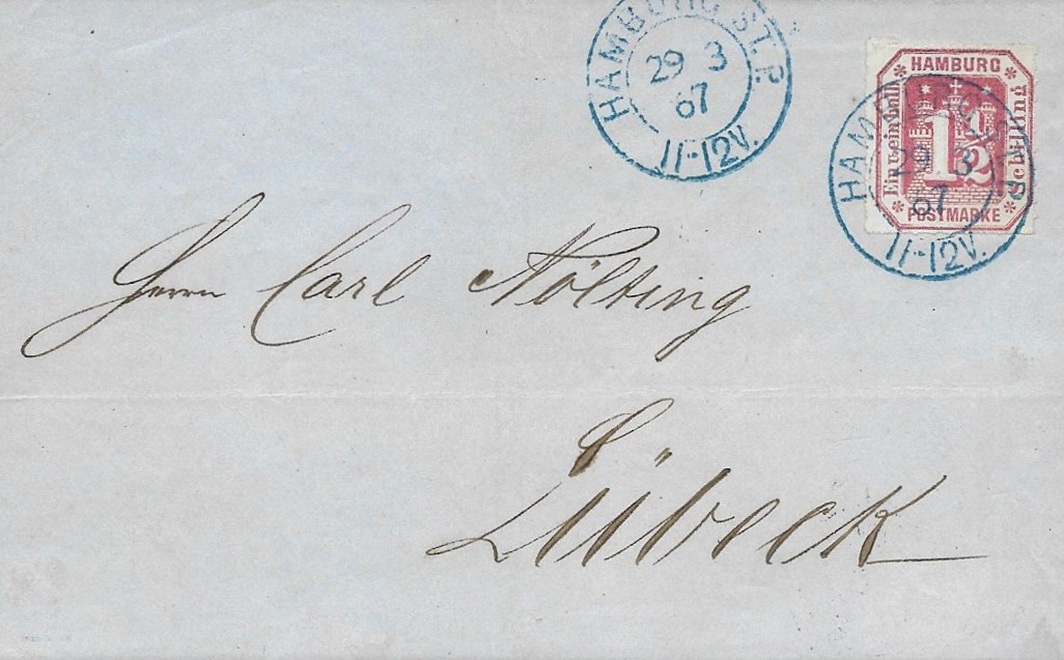 HAMBURG ST.P.
29 3
67
11-12V.
HAMBURG
Ein u. ein halb
1½
Schilling
POSTMARKE
HAMBURG ST.P.
29 3
67
11-12V.
Herrn Carl Nölting
Lübeck